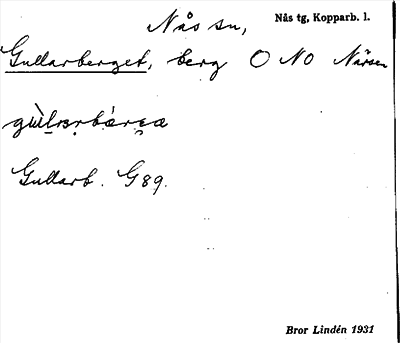 Nås sn,
Nås tg, Kopparb. l.
Gullarberget, berg O NO Närsen
Gullarb. G 89.
Bror Lindén 1931